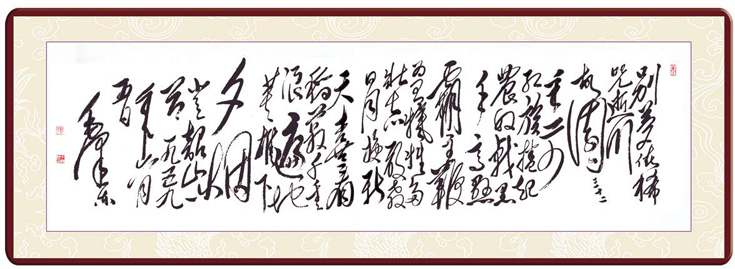 别梦依稀
咒逝川
故园三十二
年前
红旗卷起
农奴戟黑
手高悬
霸主鞭
为有牺牲多
壮志敢教
日月换新
天喜看
稻菽千重
浪遍地
英雄下
夕烟
登韶山
一九五九
年六月
毛泽东